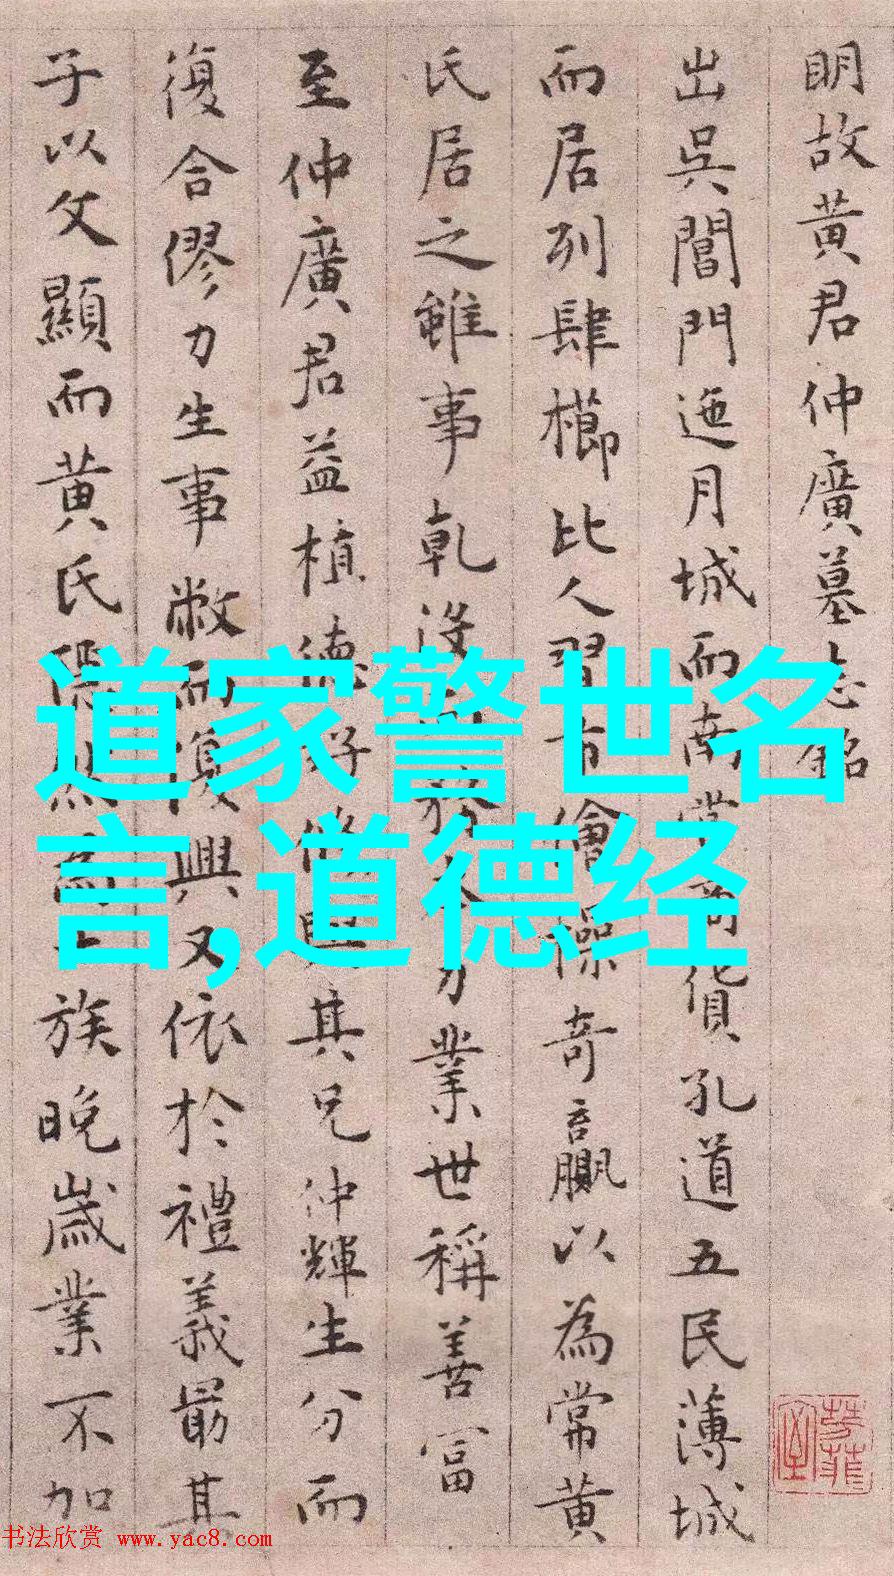 明故黄君仲廣墓志銘
出吳閶門迤月城而南常 貨孔道五民薄城
而居列肆櫛比人習市儈操奇贏以為常黄
氏居之雖事乹没 業世稱善富
至仲廣君益植德好 其兄仲輝生分而
復合僇力生事敝而復興又依於禮義最其
子以文顯而黄氏隱然為 族晚歲業不加
道家警世名
言,道德经
书法欣赏 www.yac8.com